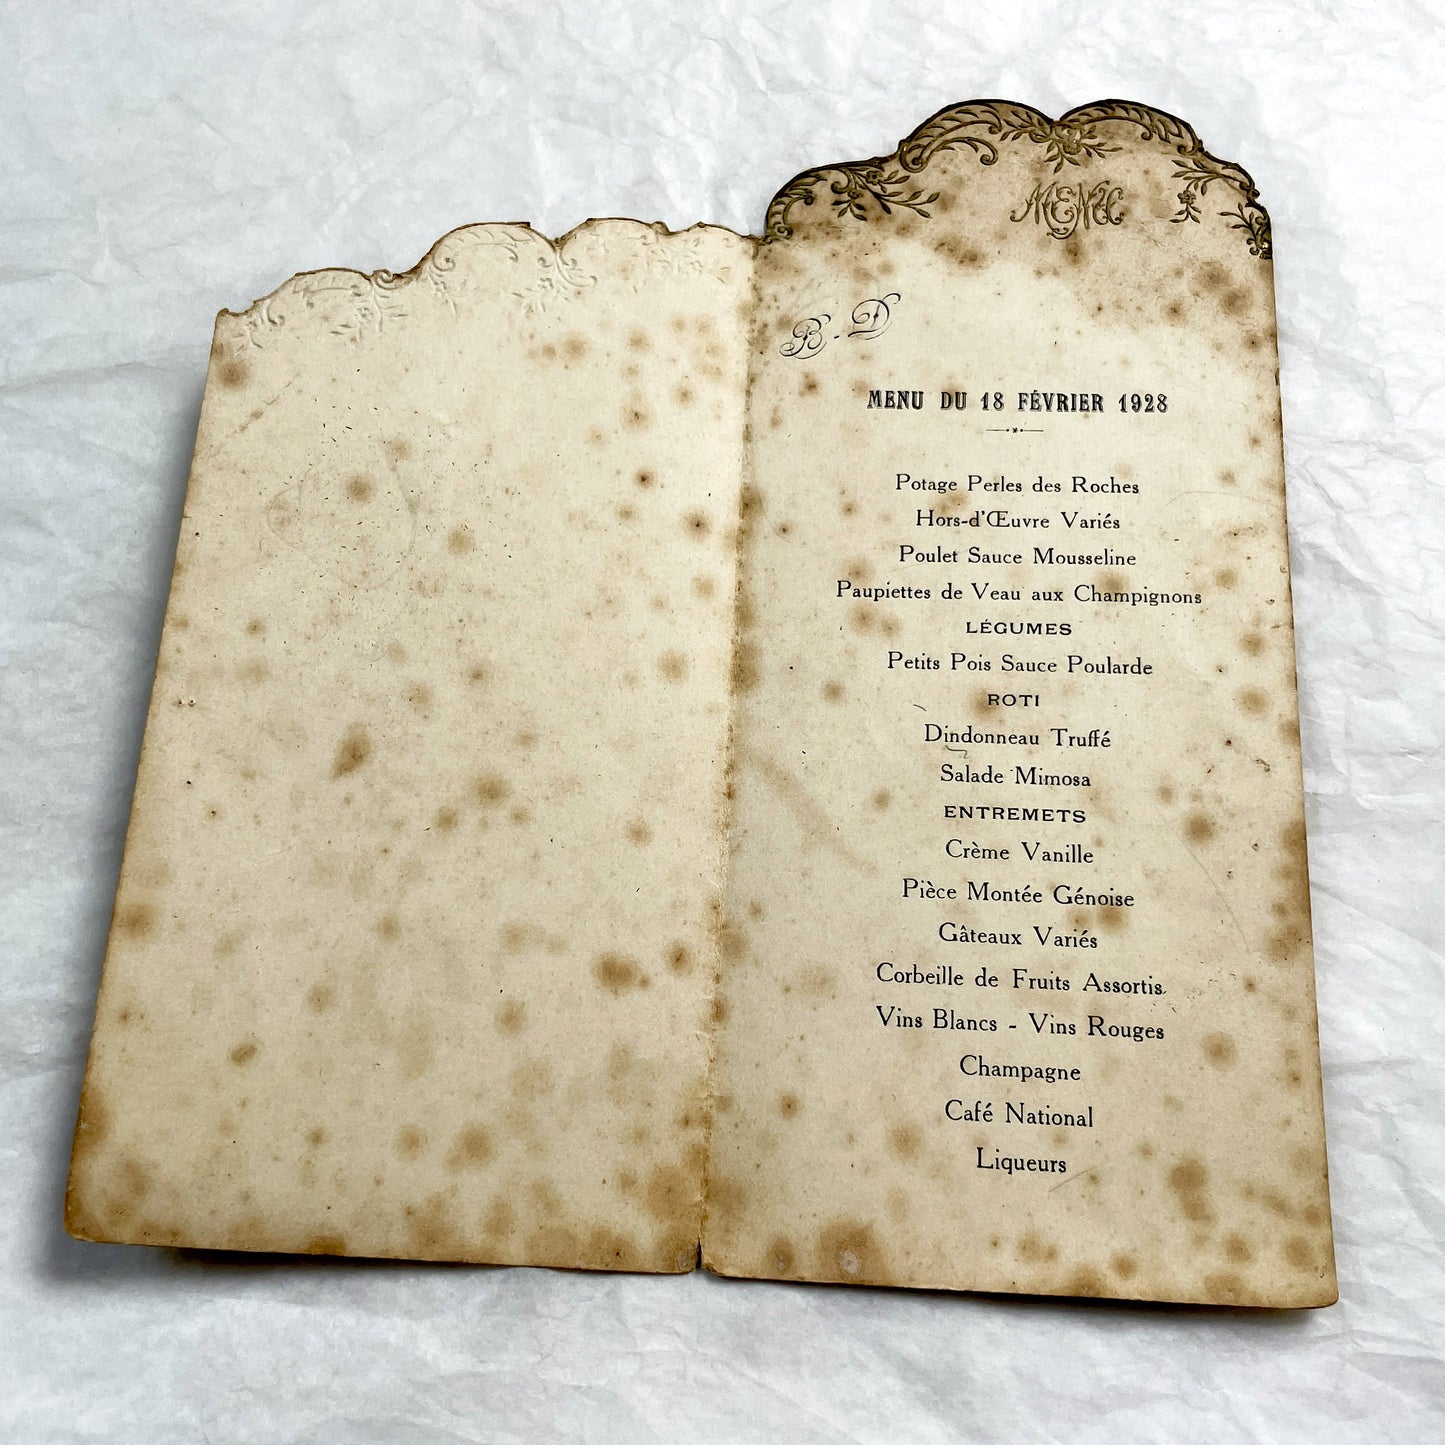 MENU
B. D
MENU DU 18 FÉVRIER 1928
Potage Perles des Roches
Hors-d'Œuvre Variés
Poulet Sauce Mousseline
Paupiettes de Veau aux Champignons
LÉGUMES
Petits Pois Sauce Poularde
ROTI
Dindonneau Truffé
Salade Mimosa
ENTREMETS
Crème Vanille
Pièce Montée Génoise
Gâteaux Variés
Corbeille de Fruits Assortis
Vins Blancs - Vins Rouges
Champagne
Café National
Liqueurs